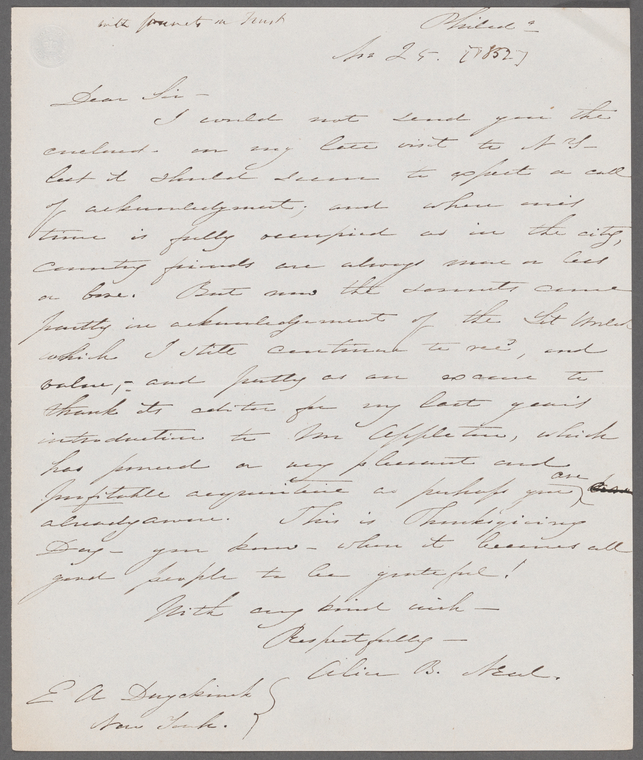 with sonnets in Trust
Philada
Nov 25. [1852]
Dear Sir -
I would not send you the
enclosed - on my late visit to N Y -
lest it should seem to expect a call
of acknowledgment; and when one's
time is fully occupied as in the city,
country friends are always more or less
a bore. But now the sonnets come
partly in acknowledgement of the Lit World
which I still continue to rec'd, and
value; - and partly as an excuse to
thank its editor for my last year's
introduction to Mr Appleton, which
has proved a very pleasant and
profitable acquaintance as perhaps you are
already aware. This is Thanksgiving
Day - you know - when it becomes all
good people to be grateful!
With any kind wish -
Respectfully -
Alice B. Neal.
E A Duyckinck
New York.